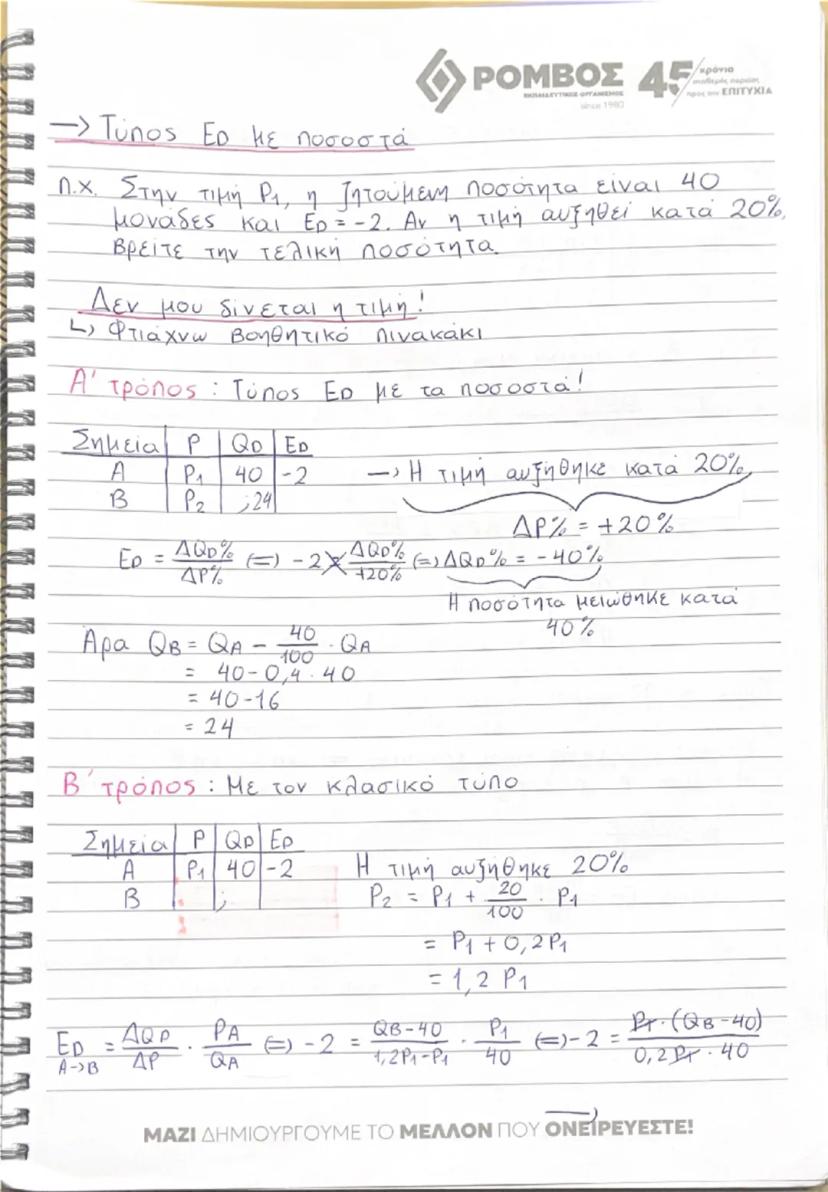 ΡΟΜΒΟΣ
ΕΚΠΑΙΔΕΥΤΙΚΟΣ ΟΡΓΑΝΙΣΜΟΣ
since 1980
45 χρόνια
σταθερής πορείας
προς την ΕΠΙΤΥΧΙΑ
→ Τύπος ED με ποσοστά
π.χ. Στην τιμή P1, η ζητούμενη ποσότητα είναι 40
μονάδες και ED = -2. Αν η τιμή αυξηθεί κατά 20%,
βρείτε την τελική ποσότητα.
Δεν μου δίνεται η τιμή!
↳ Φτιάχνω βοηθητικό πινακάκι
Α' τρόπος: Τύπος ED με τα ποσοστά!
Σημεία | P | QD | ED
A | P1 | 40 | -2 → Η τιμή αυξήθηκε κατά 20%
B | P2 | ;24
ΔP% = +20%
ED = ΔQD% / ΔP% (=) -2 = ΔQD% / +20% (=) ΔQD% = -40%
Η ποσότητα μειώθηκε κατά
40%
Άρα QB = QA - 40/100 · QA
= 40 - 0,4 · 40
= 40 - 16
= 24
Β' τρόπος: Με τον κλασικό τύπο
Σημεία | P | QD | ED
A | P1 | 40 | -2 Η τιμή αυξήθηκε 20%
B | | ; P2 = P1 + 20/100 · P1
= P1 + 0,2P1
= 1,2 P1
ED A→B = ΔQD / ΔP · PA / QA (=) -2 = QB-40 / 1,2P1-P1 · P1 / 40 (=) -2 = P1 · (QB-40) / 0,2P1 · 40
ΜΑΖΙ ΔΗΜΙΟΥΡΓΟΥΜΕ ΤΟ ΜΕΛΛΟΝ ΠΟΥ ΟΝΕΙΡΕΥΕΣΤΕ!